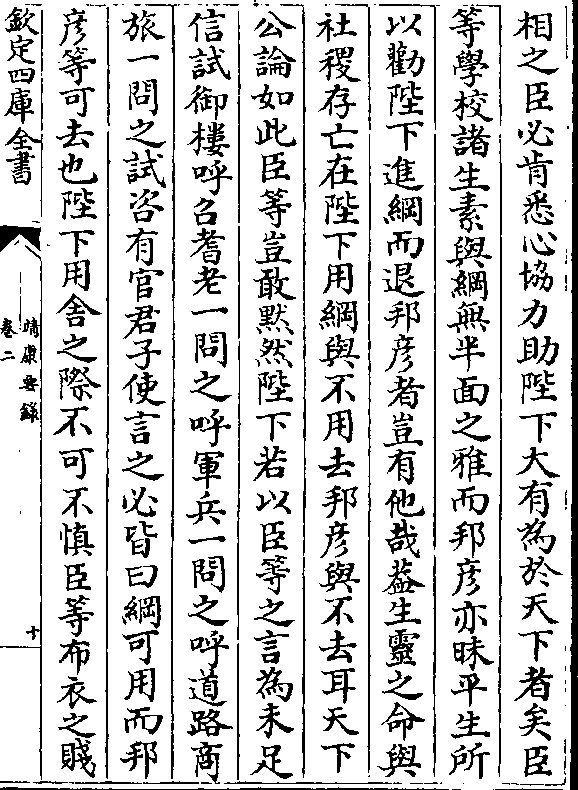 相之臣必肯悉心協力助陛下大有為於天下者矣臣
等學校諸生素與綱無半面之雅而邦彦亦昧平生所
以勸陛下進綱而退邦彦者豈有他哉葢生靈之命與
社稷存亡在陛下用綱與不用去邦彦與不去耳天下
公論如此臣等豈敢默然陛下若以臣等之言為未足
信試御樓呼召耆老一問之呼軍兵一問之呼道路商
旅一問之試咨有官君子使言之必皆曰綱可用而邦
彦等可去也陛下用舍之際不可不慎臣等布衣之賤
欽定四庫全書
靖康要錄
卷二
十